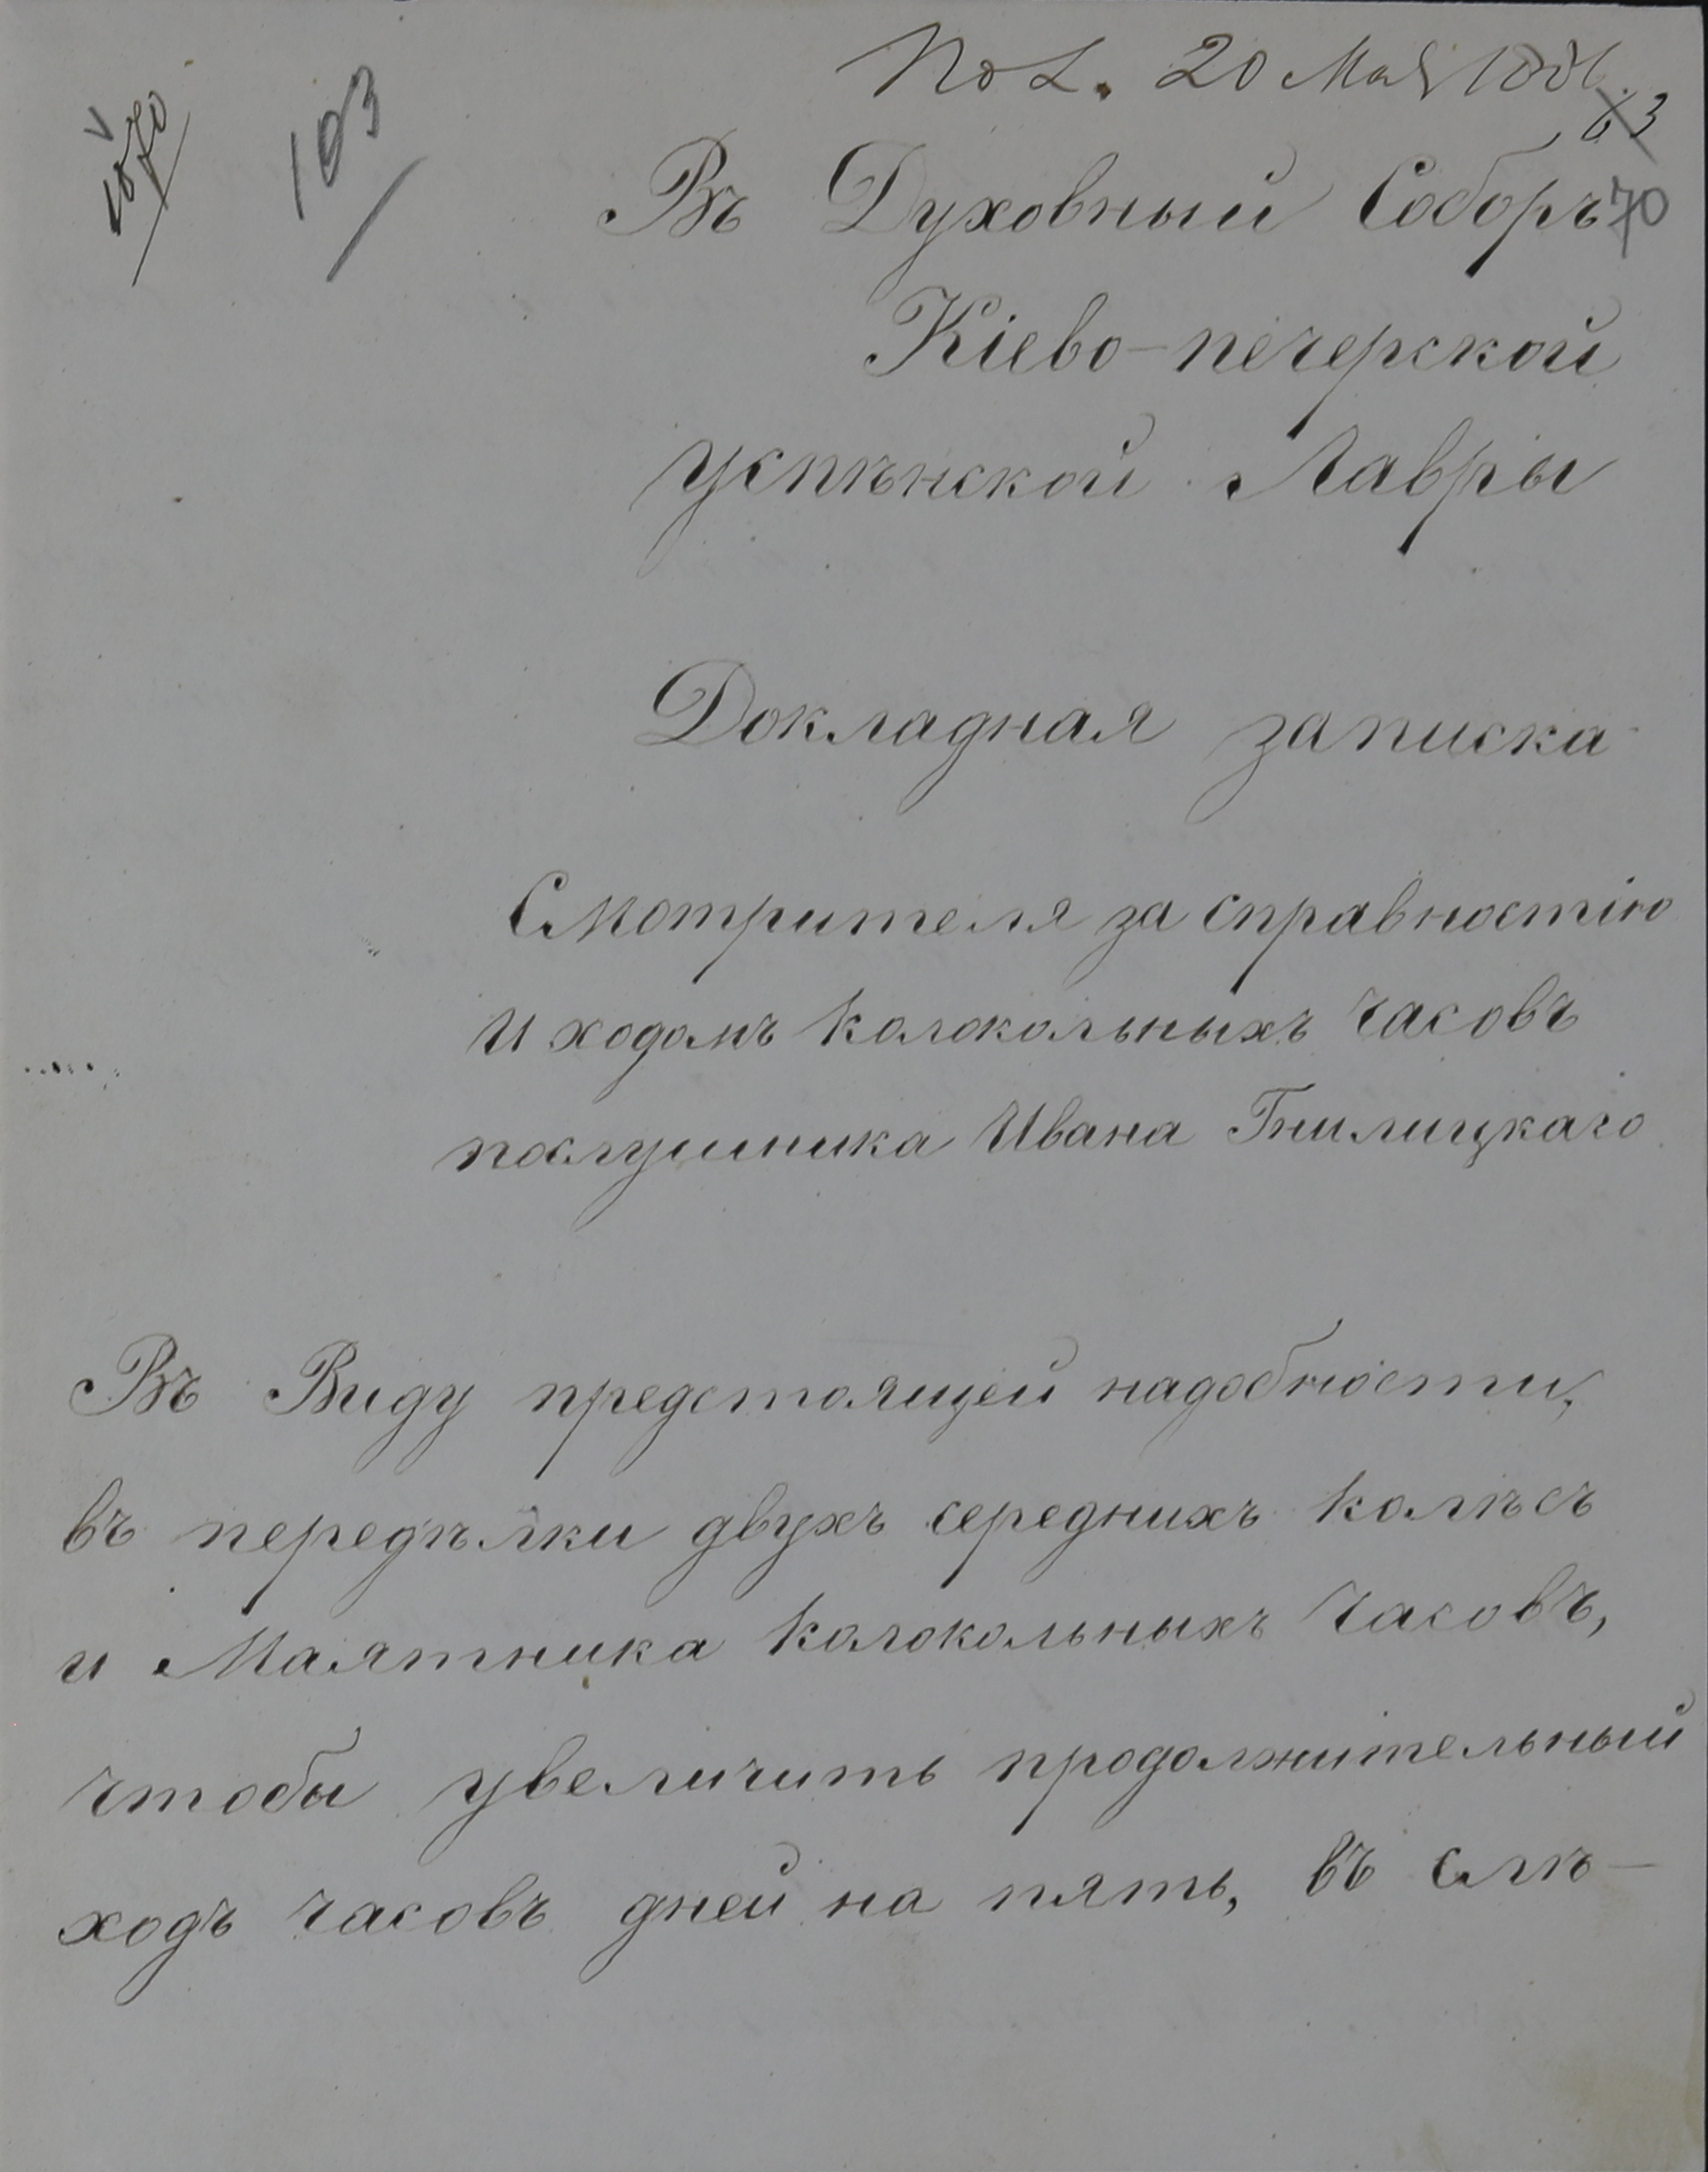 20 Мая
63
Въ Духовный Соборъ 70
Кіево-печерской
успѣнской Лавры
103
Докладная записка
Смотрителя за справностію
и ходомъ колокольныхъ часовъ
послушника Ивана Гнилицкаго
Въ Виду предстоящей надобности,
въ передѣлки двухъ середнихъ колѣсъ
и Маятника колокольныхъ часовъ,
чтобы увеличить продолжительный
ходъ часовъ дней на пять, въ слѣ-